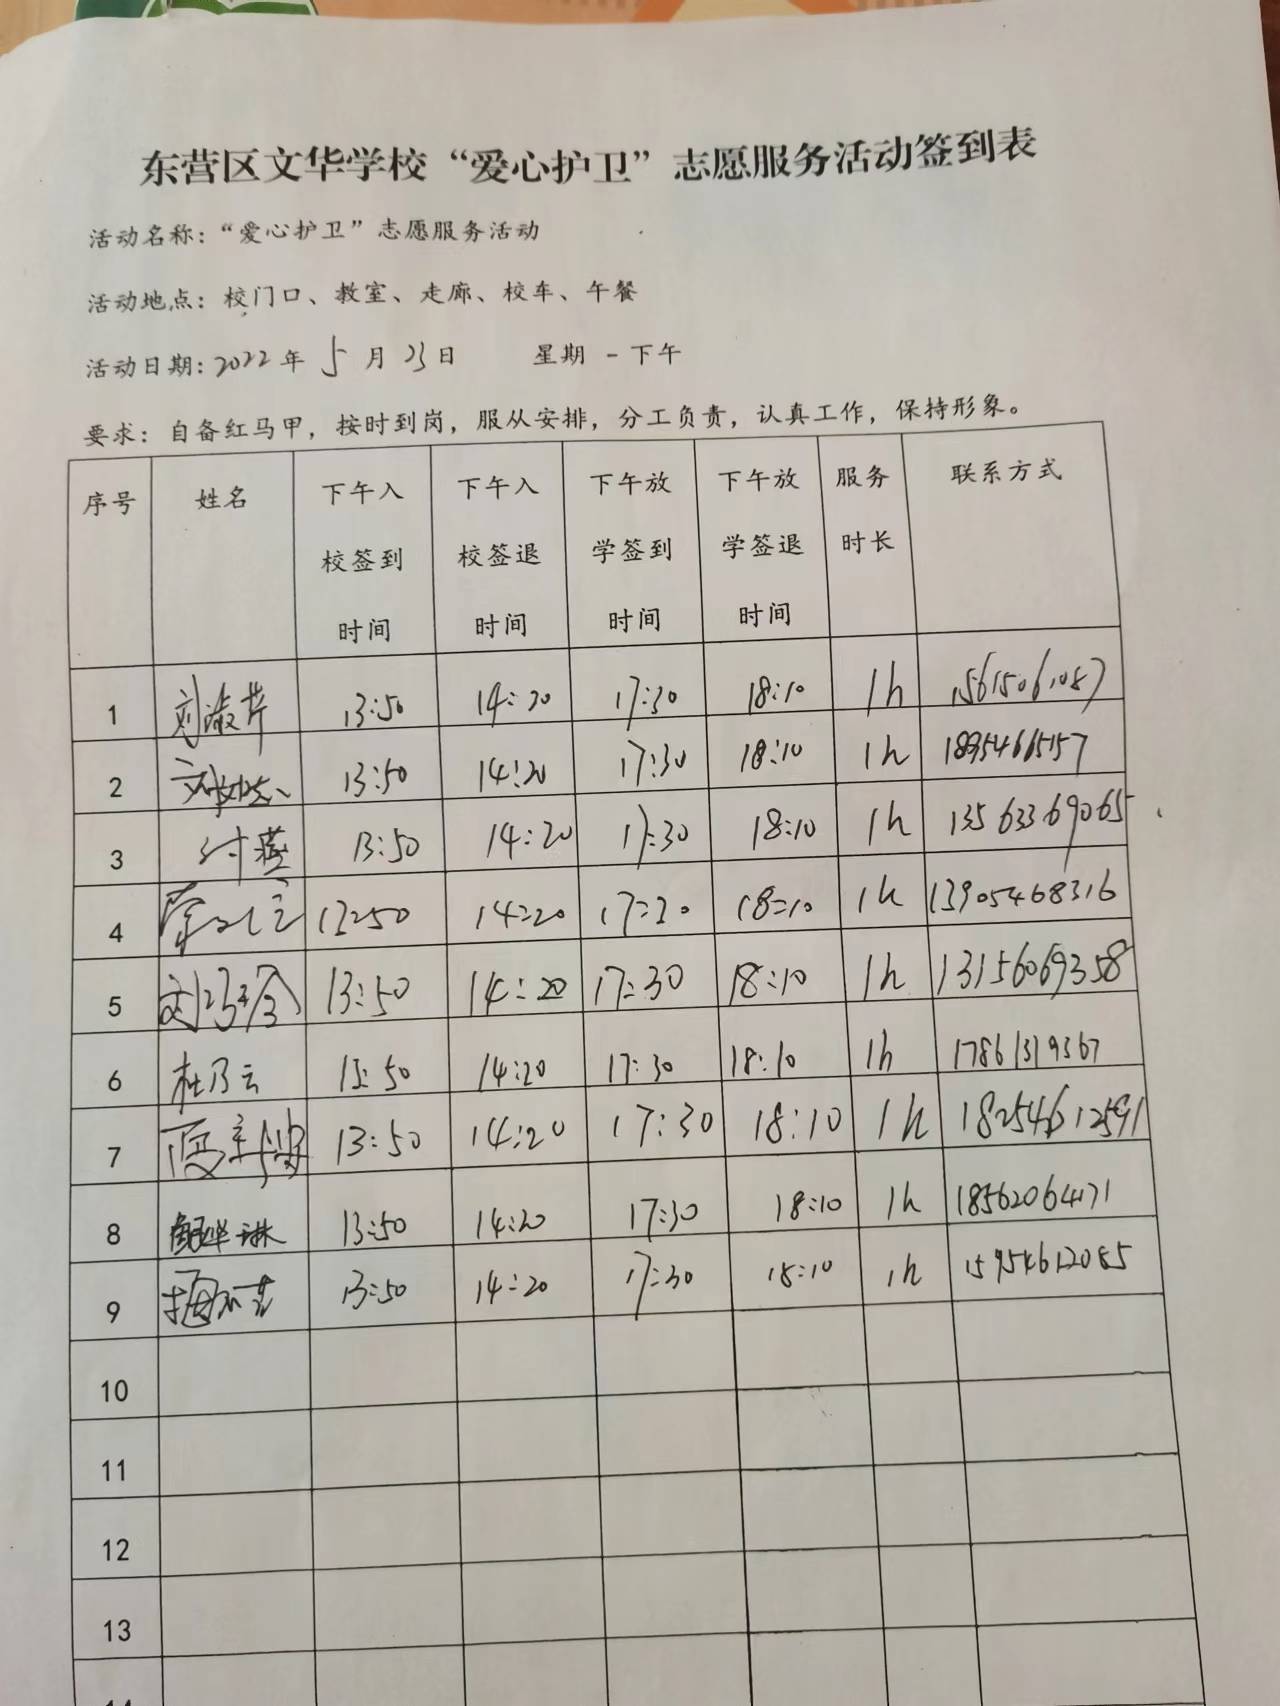 东营区文华学校“爱心护卫”志愿服务活动签到表
活动名称：“爱心护卫”志愿服务活动
活动地点：校门口、教室、走廊、校车、午餐
活动日期：2022年 5月23日 星期 一下午
要求：自备红马甲，按时到岗，服从安排，分工负责，认真工作，保持形象。
序号 姓名 下午入校签到时间 下午入校签退时间 下午放学签到时间 下午放学签退时间 服务时长 联系方式
1 刘淑芹 13:50 14:20 17:30 18:10 1h 15615061087
2 13:50 14:20 17:30 18:10 1h 18954665157
3 付燕 13:50 14:20 17:30 18:10 1h 13563369065
4 13:50 14:20 17:30 18:10 1h 13905468316
5 13:50 14:20 17:30 18:10 1h 13156069358
6 杜乃云 13:50 14:20 17:30 18:10 1h 17861319367
7 13:50 14:20 17:30 18:10 1h 18254612591
8 13:50 14:20 17:30 18:10 1h 18562064171
9 13:50 14:20 17:30 18:10 1h 15954612085
10
11
12
13